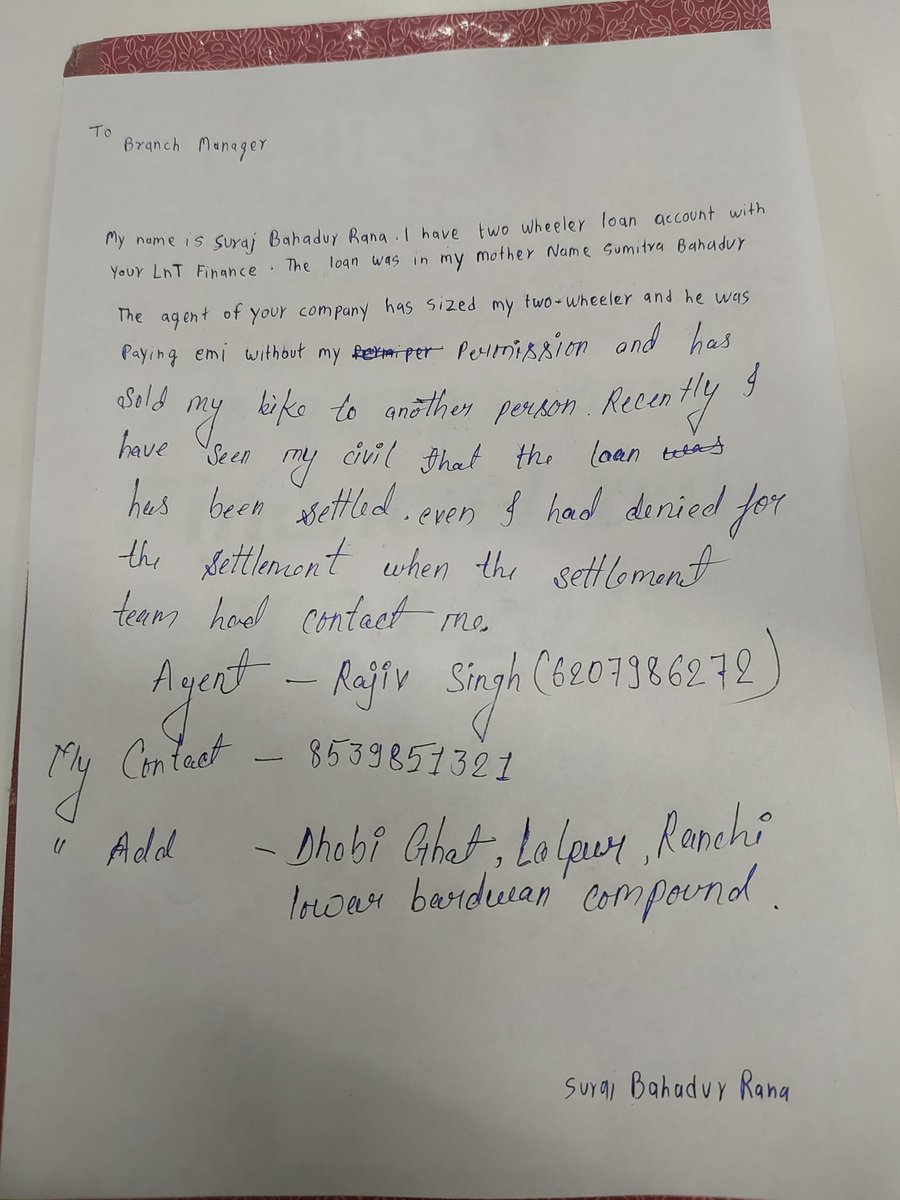 To
Branch Manager
My name is Suraj Bahadur Rana. I have two wheeler loan account with
Your LnT Finance. The loan was in my mother Name Sumitra Bahadur
The agent of your company has sized my two-wheeler and he was
Paying emi without my permission and has
sold my bike to another person. Recently I
have seen my civil that the loan was
has been settled. even I had denied for
the settlement when the settlement
team had contact me.
Agent - Rajiv Singh (6207986272)
My Contact - 8539851321
" Add - Dhobi Ghat, Lalpur, Ranchi
lowar bardwan compound.
Suraj Bahadur Rana